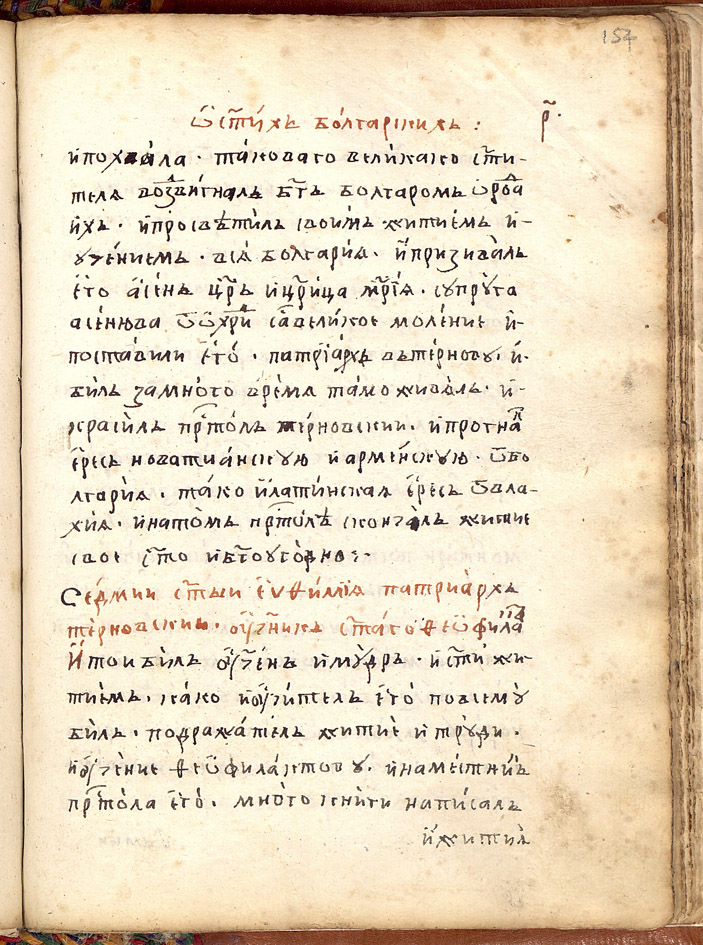 157
Ѿ ст҃ихь болгарскихь : р҃·
и похвала · таковаго великаго ст҃и-
теля воздвигналь бг҃ь болгаромь ѿ рода
ихь · и просвѣтиль своимь житиемь и
учениемь · вся болгария · и призиваль
его асень цр҃ь и цр҃ица мр҃ия · супруга
асенюва ѿ охрид са велїкое моление и
поставили его · патриархь вь тернову · и
биль за много время тамо живаль · и
украсиль пр҃толь терновскии · и прогнал
ересь новатианскую и арменскую · ѿ бо
лгария · тако и латинская ересь ѿ вла-
хия · и на томь пр҃толѣ скончаль житие
свое ст҃о и бг҃оугодно :-
Седмии ст҃ыи еѵѳимия патриархь
терновскии · оученикь ст҃аго ѳеѡфилакта
И тои биль оучень и мудрь · и ст҃и жи-
тиемь · како и оучитель его по всему
биль · подражатель житие и труди ·
и оучение ѳеѡфилактову · и наместникь
пр҃тола его · много книги написаль
и житиа